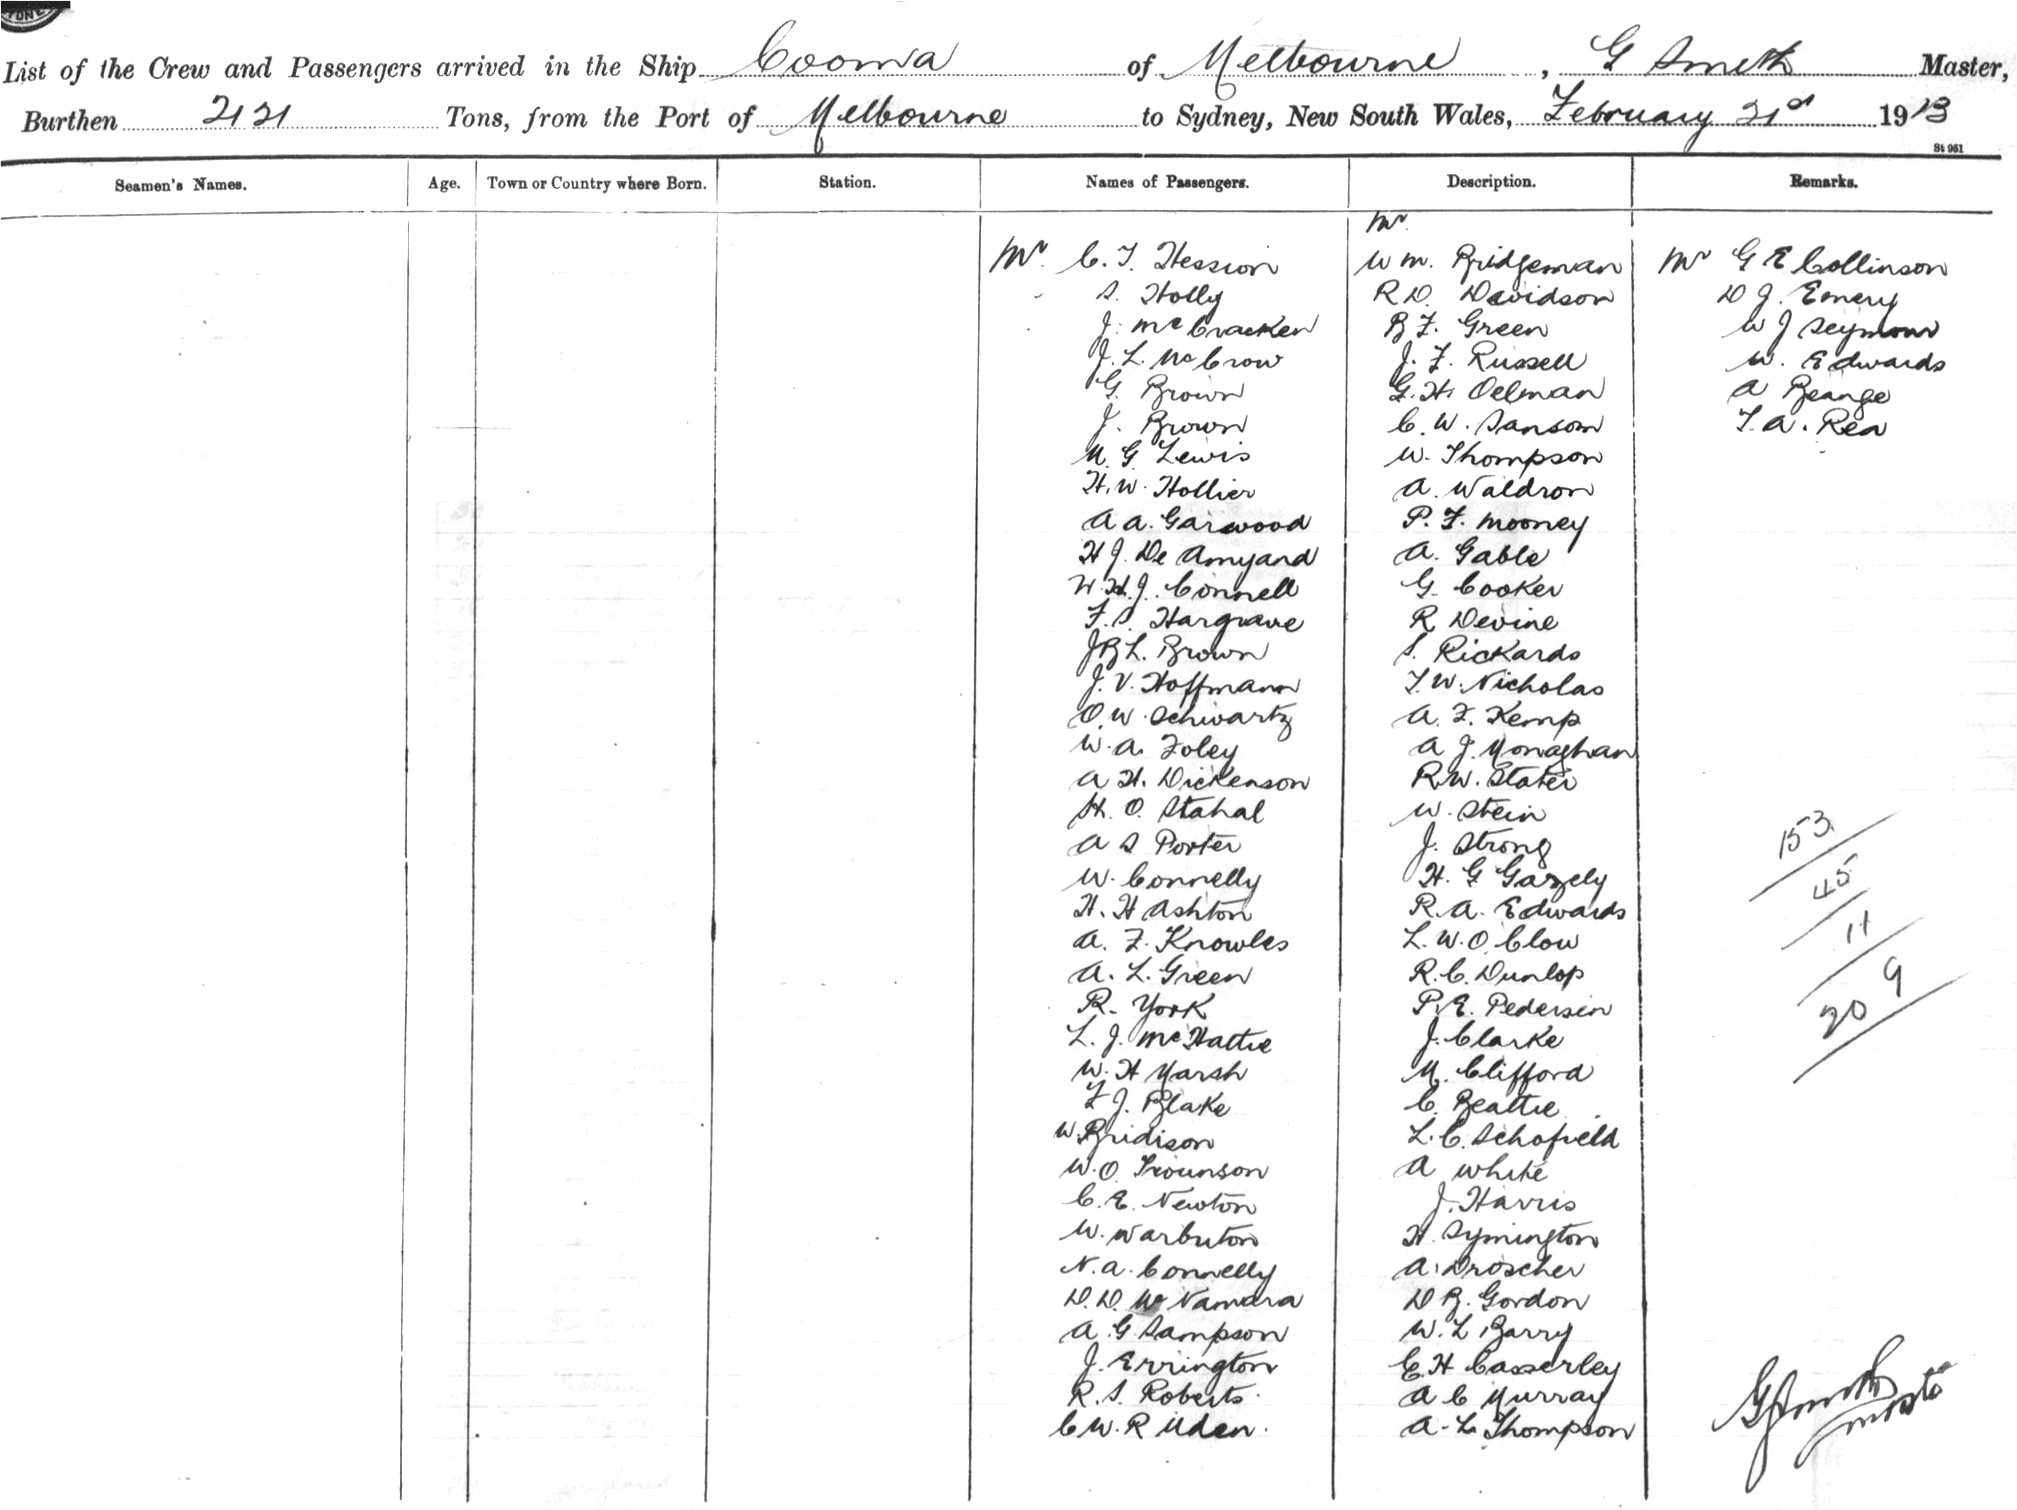 List of the Crew and Passengers arrived in the Ship Cooma of Melbourne, G Smith Master,
Burthen 2121 Tons, from the Port of Melbourne to Sydney, New South Wales, February 21st 1913
St 961
Seamen's Names. Age. Town or Country where Born. Station. Names of Passengers. Description. Remarks.
Mr. C. T. Hession
S. Holly
J. McCracken
J. L. McCrow
G. Brown
J. Brown
M. G. Lewis
H. W. Hollier
A A. Garwood
H J. De Amyand
W. H. J. Connell
F. S. Hargrave
J B L. Brown
J. V. Hoffmann
O. W. Schwartz
W. A. Foley
A H. Dickenson
H. O. Stahal
A S Porter
W. Connelly
H. H Ashton
A. F. Knowles
A. L. Green
R. York
L. J. McHattie
W. H Marsh
F J. Blake
W. Bridison
W. O. Trounson
C. E. Newton
W. Warbuton
N. A. Connelly
D. D. McNamara
A. G. Sampson
J. Errington
R. S. Roberts.
C W. R Uden.
Mr
W M. Bridgeman
R D. Davidson
B F. Green
J. F. Russell
G. H. Oelman
C. W. Sansom
W. Thompson
A. Waldron
P. F. Mooney
A. Gable
G. Cooker
R Devine
S. Rickards
T. W. Nicholas
A. F. Kemp
A J. Monaghan
R. W. Stater
W. Stein
J. Strong
H. G Gazely
R. A. Edwards
L. W. O. Clow
R. C. Dunlop
P. E. Pedersen
J. Clarke
M. Clifford
C. Beattie
L. C. Schofield
A White
J. Harris
H. Symington
A. Droscher
D B. Gordon
W. L Barry
E. H Casserley
A C Murray
A. L Thompson
Mr G E Collinson
D J. Emery
W J Seymour
W. Edwards
A Beange
T. A. Rea
153
45
11
209
G Smith